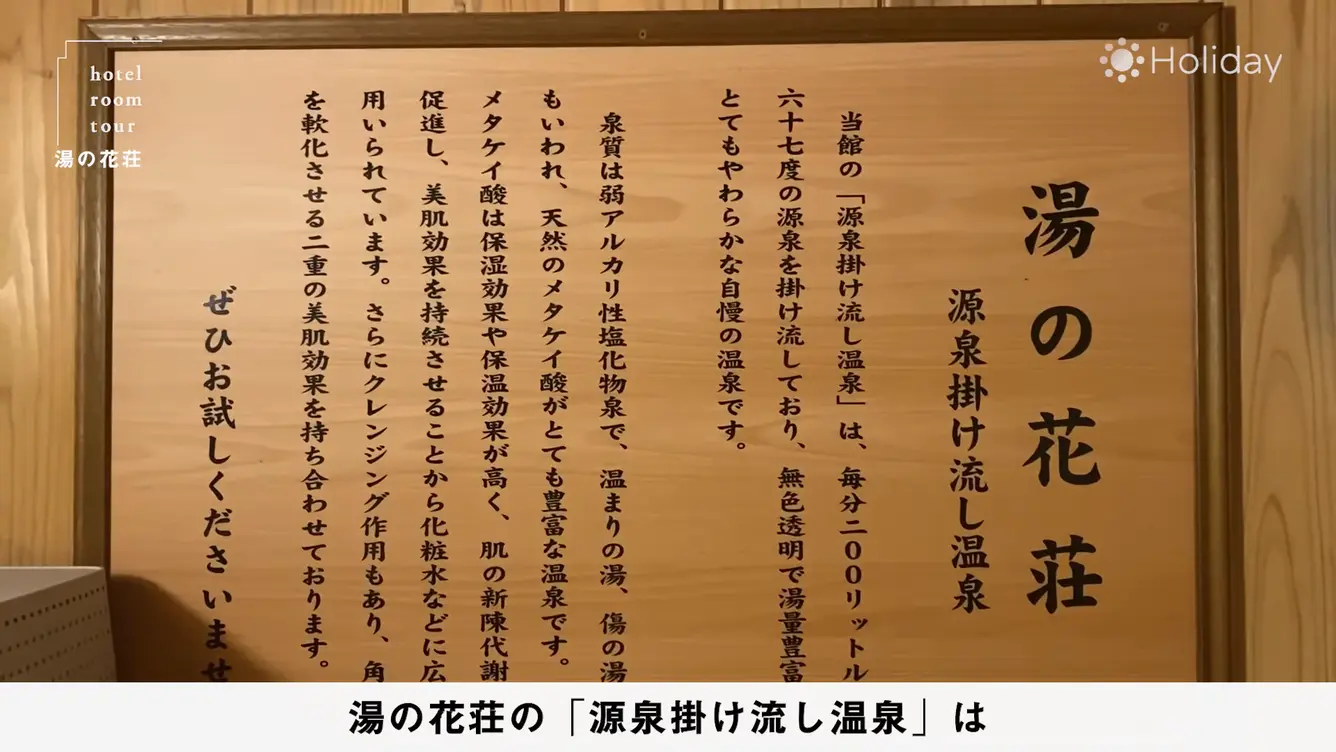 hotel
room
tour
湯の花荘
Holiday
湯の花荘
源泉掛け流し温泉
当館の「源泉掛け流し温泉」は、毎分二00リットル
六十七度の源泉を掛け流しており、無色透明で湯量豊富
とてもやわらかな自慢の温泉です。
泉質は弱アルカリ性塩化物泉で、温まりの湯、傷の湯
もいわれ、天然のメタケイ酸がとても豊富な温泉です。
メタケイ酸は保湿効果や保温効果が高く、肌の新陳代謝
促進し、美肌効果を持続させることから化粧水などに広
用いられています。さらにクレンジング作用もあり、角
を軟化させる二重の美肌効果を持ち合わせております。
ぜひお試しくださいませ
湯の花荘の「源泉掛け流し温泉」は